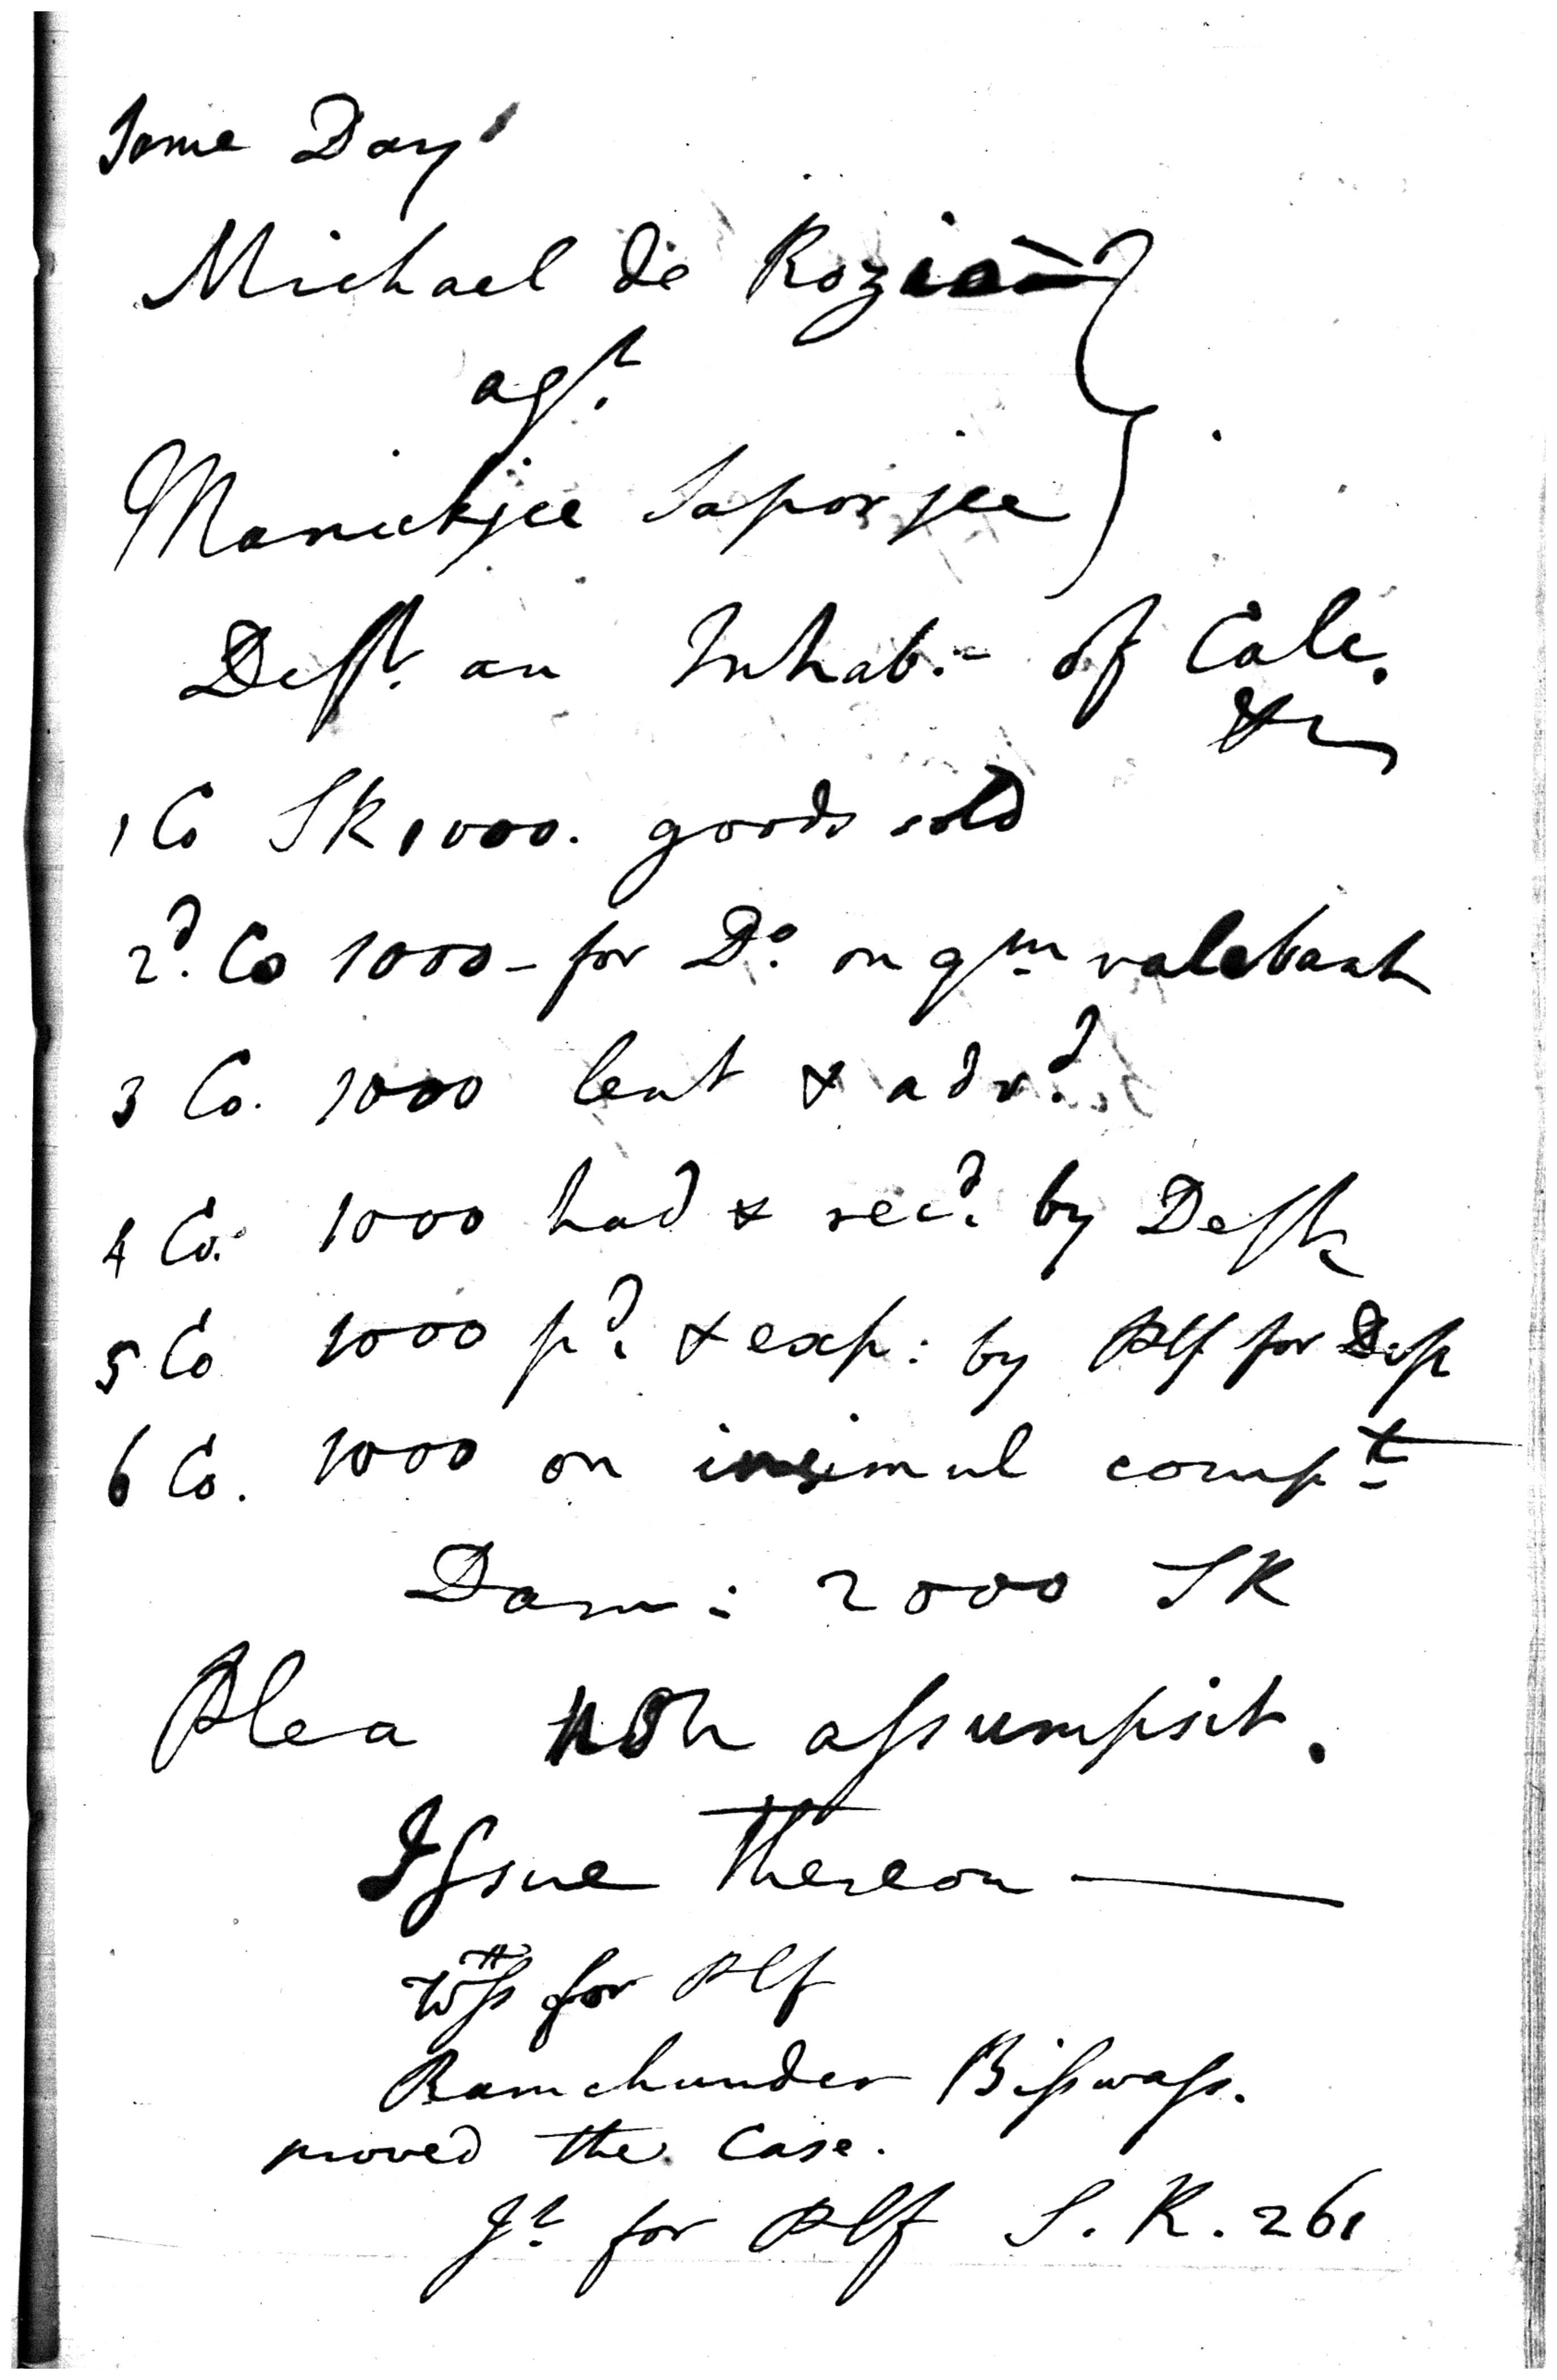 Same Day
Michael de Rozio
agst.
Manickjee Saporjee
Deft. an Inhab:- of Calc.
&c
1 Co SR 1000. goods sold
2d. Co 1000 - for Do. on qm valebant
3 Co. 1000 lent & advd.
4 Co. 1000 had & recd. by Deft.
5 Co 1000 pd. & exp: by Plf for Deft
6 Co. 1000 on insimul compt
Dam: 2000 SR
Plea non assumpsit.
Issue thereon —
Wss for Plf
Ramchunder Bisswass.
proved the Case.
Jt. for Plf S. R. 261